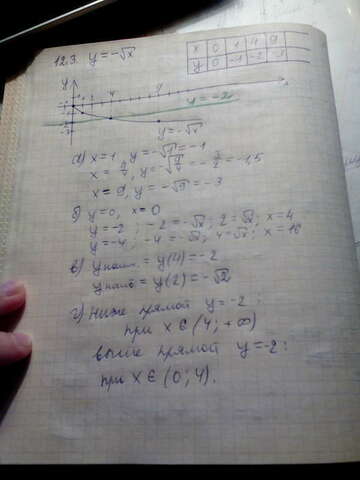 12.3. y = -√x
x | 0 | 1 | 4 | 9
y | 0 | -1 | -2 | -3
y
x
y = -2
y = -√x
а) x = 1, y = -√1 = -1
x = 9/4, y = -√(9/4) = -3/2 = -1,5
x = 9, y = -√9 = -3
б) y = 0, x = 0
y = -2; -2 = -√x; 2 = √x; x = 4
y = -4; -4 = -√x; 4 = √x; x = 16
в) yнаим. = y(4) = -2
yнаиб = y(2) = -√2
г) Ниже прямой y = -2:
при x ∈ (4; +∞)
выше прямой y = -2:
при x ∈ (0; 4).